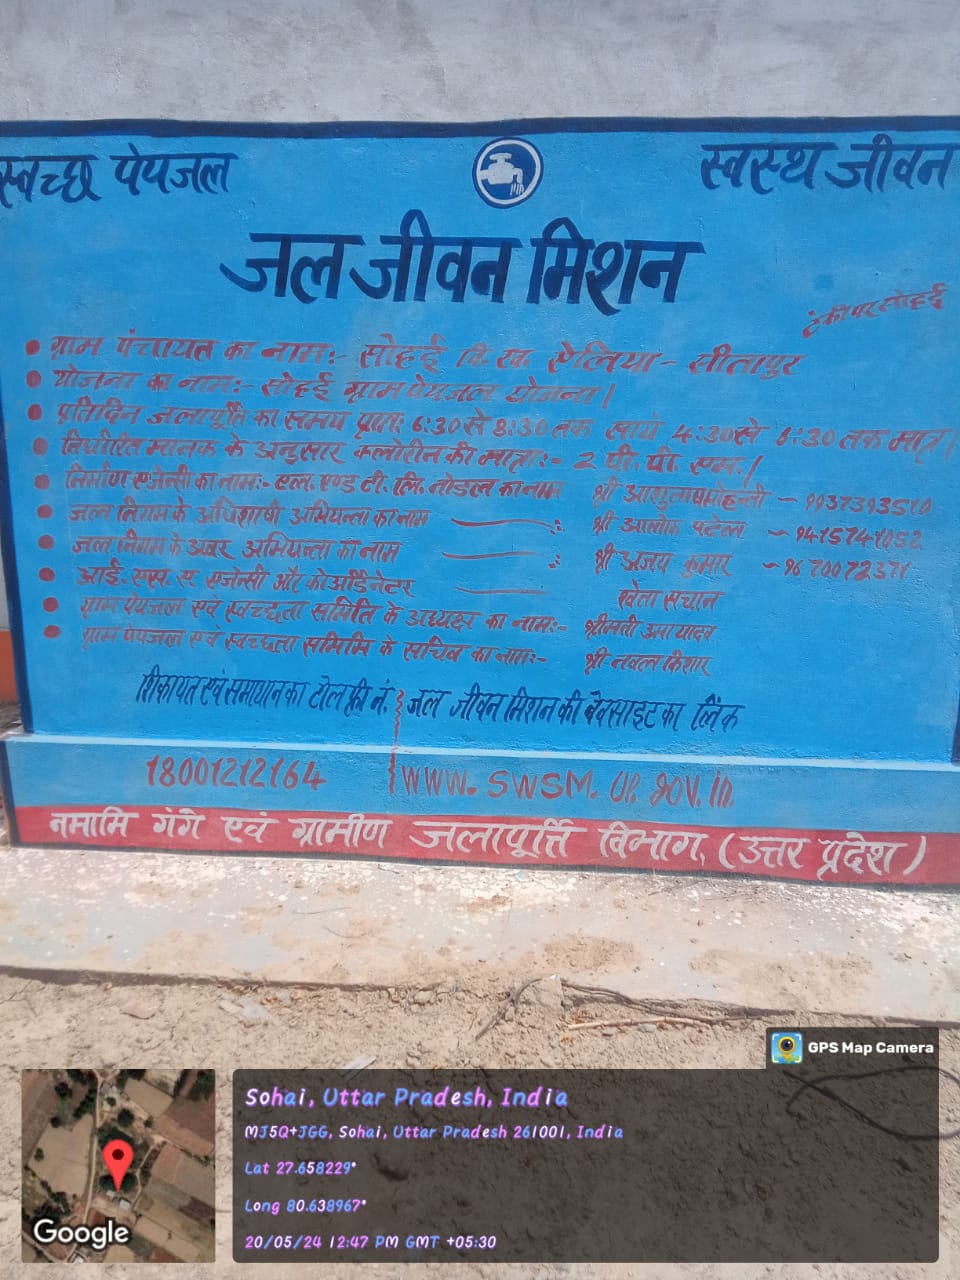 स्वच्छ पेयजल
स्वस्थ जीवन
जल जीवन मिशन
टंकी पर सोहई
ग्राम पंचायत का नाम:- सोहई वि.ख. ऐलिया - सीतापुर
योजना का नाम:- सोहई ग्राम पेयजल योजना।
प्रतिदिन जलापूर्ति का समय प्रातः 6:30 से 8:30 तक सायं 4:30 से 6:30 तक मात्र।
निर्धारित मानक के अनुसार क्लोरीन की मात्रा:- 2 पी.पी. एम.।
निर्माण एजेन्सी का नाम:- एल. एण्ड टी. लि. नोडल का नाम श्री - 9937393510
जल निगम के अधिशाषी अभियन्ता का नाम श्री आलोक पटेल - 9415741052
जल निगम के अवर अभियन्ता का नाम श्री अजय कुमार - 9670072371
आई. एस. ए एजेन्सी और कोऑर्डिनेटर श्वेता सचान
ग्राम पेयजल एवं स्वच्छता समिति के अध्यक्ष का नाम:- श्रीमती उमा यादव
ग्राम पेयजल एवं स्वच्छता समिमि के सचिव का नाम:- श्री नवल किशोर
शिकायत एवं समाधान का टोल फ्री नं. जल जीवन मिशन की वैवसाइट का लिंक
18001212164 www. SWSM. UP. gov. in
नमामि गंगे एवं ग्रामीण जलापूर्त्ति विभाग, (उत्तर प्रदेश)
GPS Map Camera
Sohai, Uttar Pradesh, India
MJ5Q+JGG, Sohai, Uttar Pradesh 261001, India
Lat 27.658229°
Long 80.638967°
20/05/24 12:47 PM GMT +05:30
Google